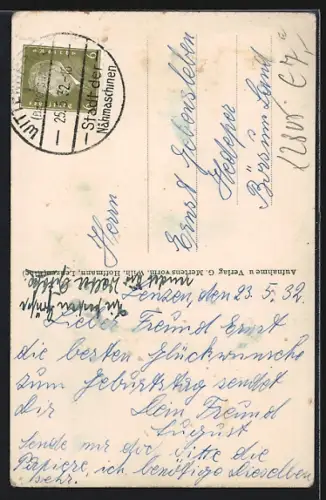 WITT
25. 32
Stadt der
Nähmaschinen
6
Herrn
Ernst Lebensleben
Hedeper
Börssum Land
Aufnahme u Verlag G. Mertens vorm. Wilh. Hoffmann, Lenzen
Lenzen, den 23. 5. 32.
Lieber Freund Ernst
die besten Glückwünsche
zum Geburtstag sendet
Dir Dein Freund
August
Sende mir doch bitte die
Papiere, ich benötige Dieselben
sehr.